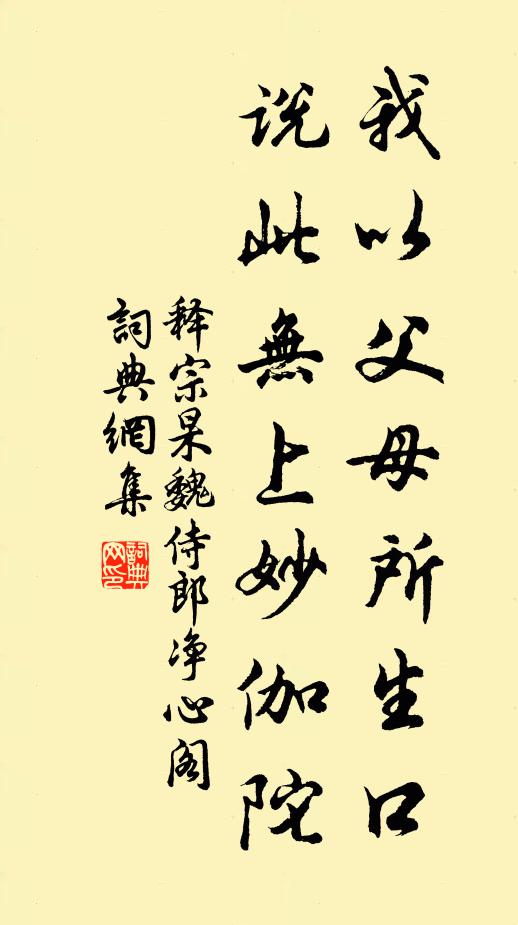 我以父母所生口
说此無上妙伽陀
释宗杲魏侍郎净心阁
詞典網集
詞典网印